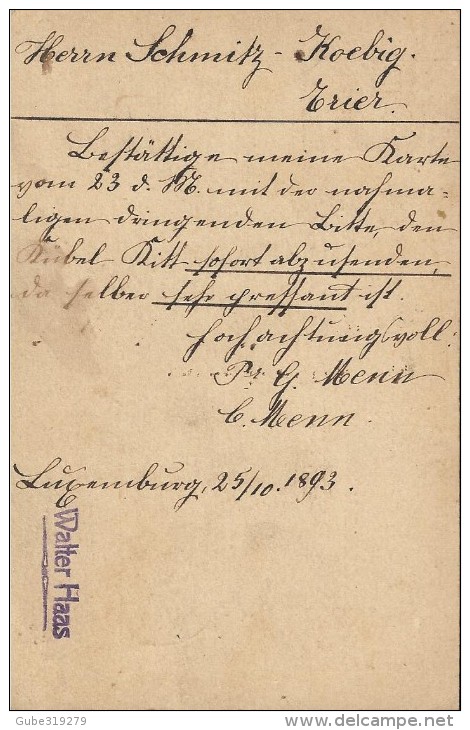 Herrn Schmitz - Koebig.
Trier.
Bestättige meine Karte
vom 23 d. M. mit der nochma=
ligen dringenden Bitte, den
Kübel Kitt sofort abzusenden,
da selber sehr pressant ist.
Hochachtungsvoll.
Pr G. Menn
C. Menn.
Luxemburg, 25/10. 1893.
Walter Haas
Gube319279
delcampe.net